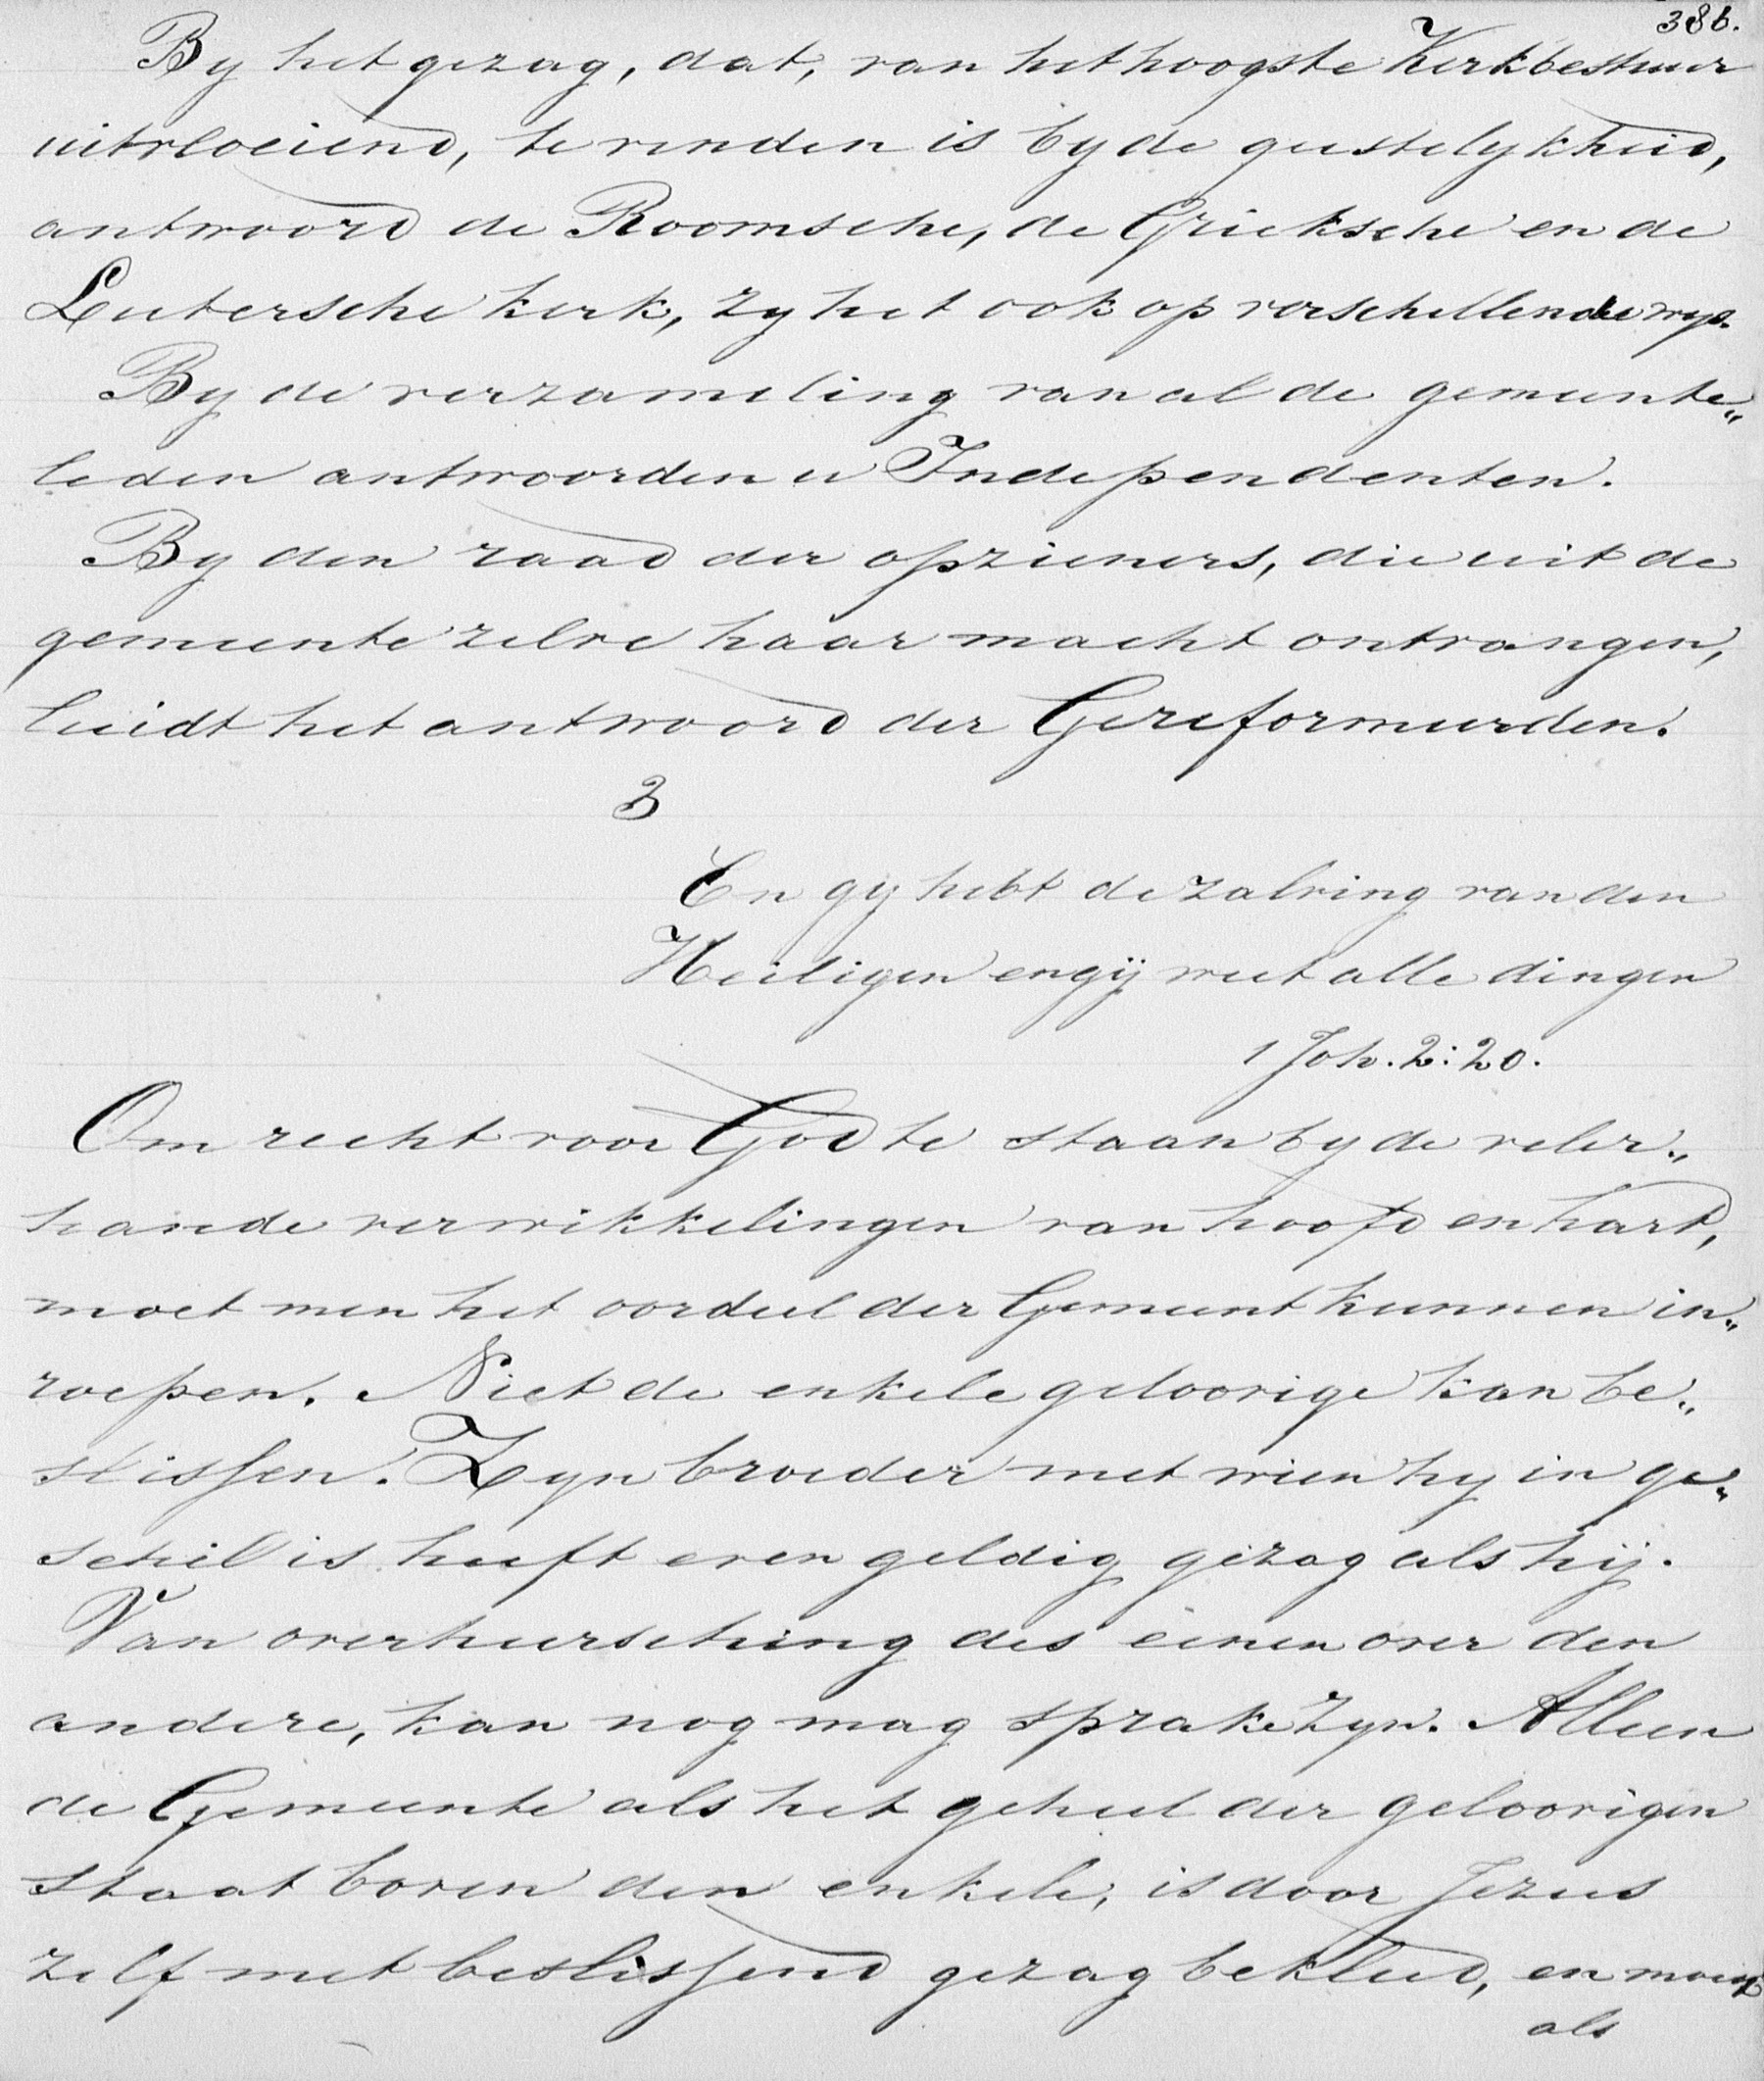 386.
By het gezag, dat, van het hoogste Kerkbestuur
uitvloeiend, te vinden is by de geestelykheid,
antwoord de Roomsche, de Grieksche en de
Lutersche kerk, zy het ook op verschillende wys.
By de verzameling van al de gemeente„
leden antwoorden u Independenten.
By den raad der opzieners, die uit de
gemeente zelve haar macht ontvangen,
luidt het antwoord der Gereformeerden.
3
En gy hebt de zalving van den
Heiligen en gij weet alle dingen
1 Joh. 2:20.
Om recht voor God te staan by de veler„
hande verwikkelingen van hoofd en hart,
moet men het oordeel der Gemeent kunnen in„
roepen. Niet de enkele geloovige kan be„
slissen. Zyn broeder met wien hy in ge„
schil is heeft even geldig gezag als hij.
Van overheersching des eenen over den
andere, kan nog mag sprake zyn. Alleen
de Gemeente als het geheel der geloovigen
staat boven den enkele, is door Jezus
zelf met beslissend gezag bekleed, en moet
als